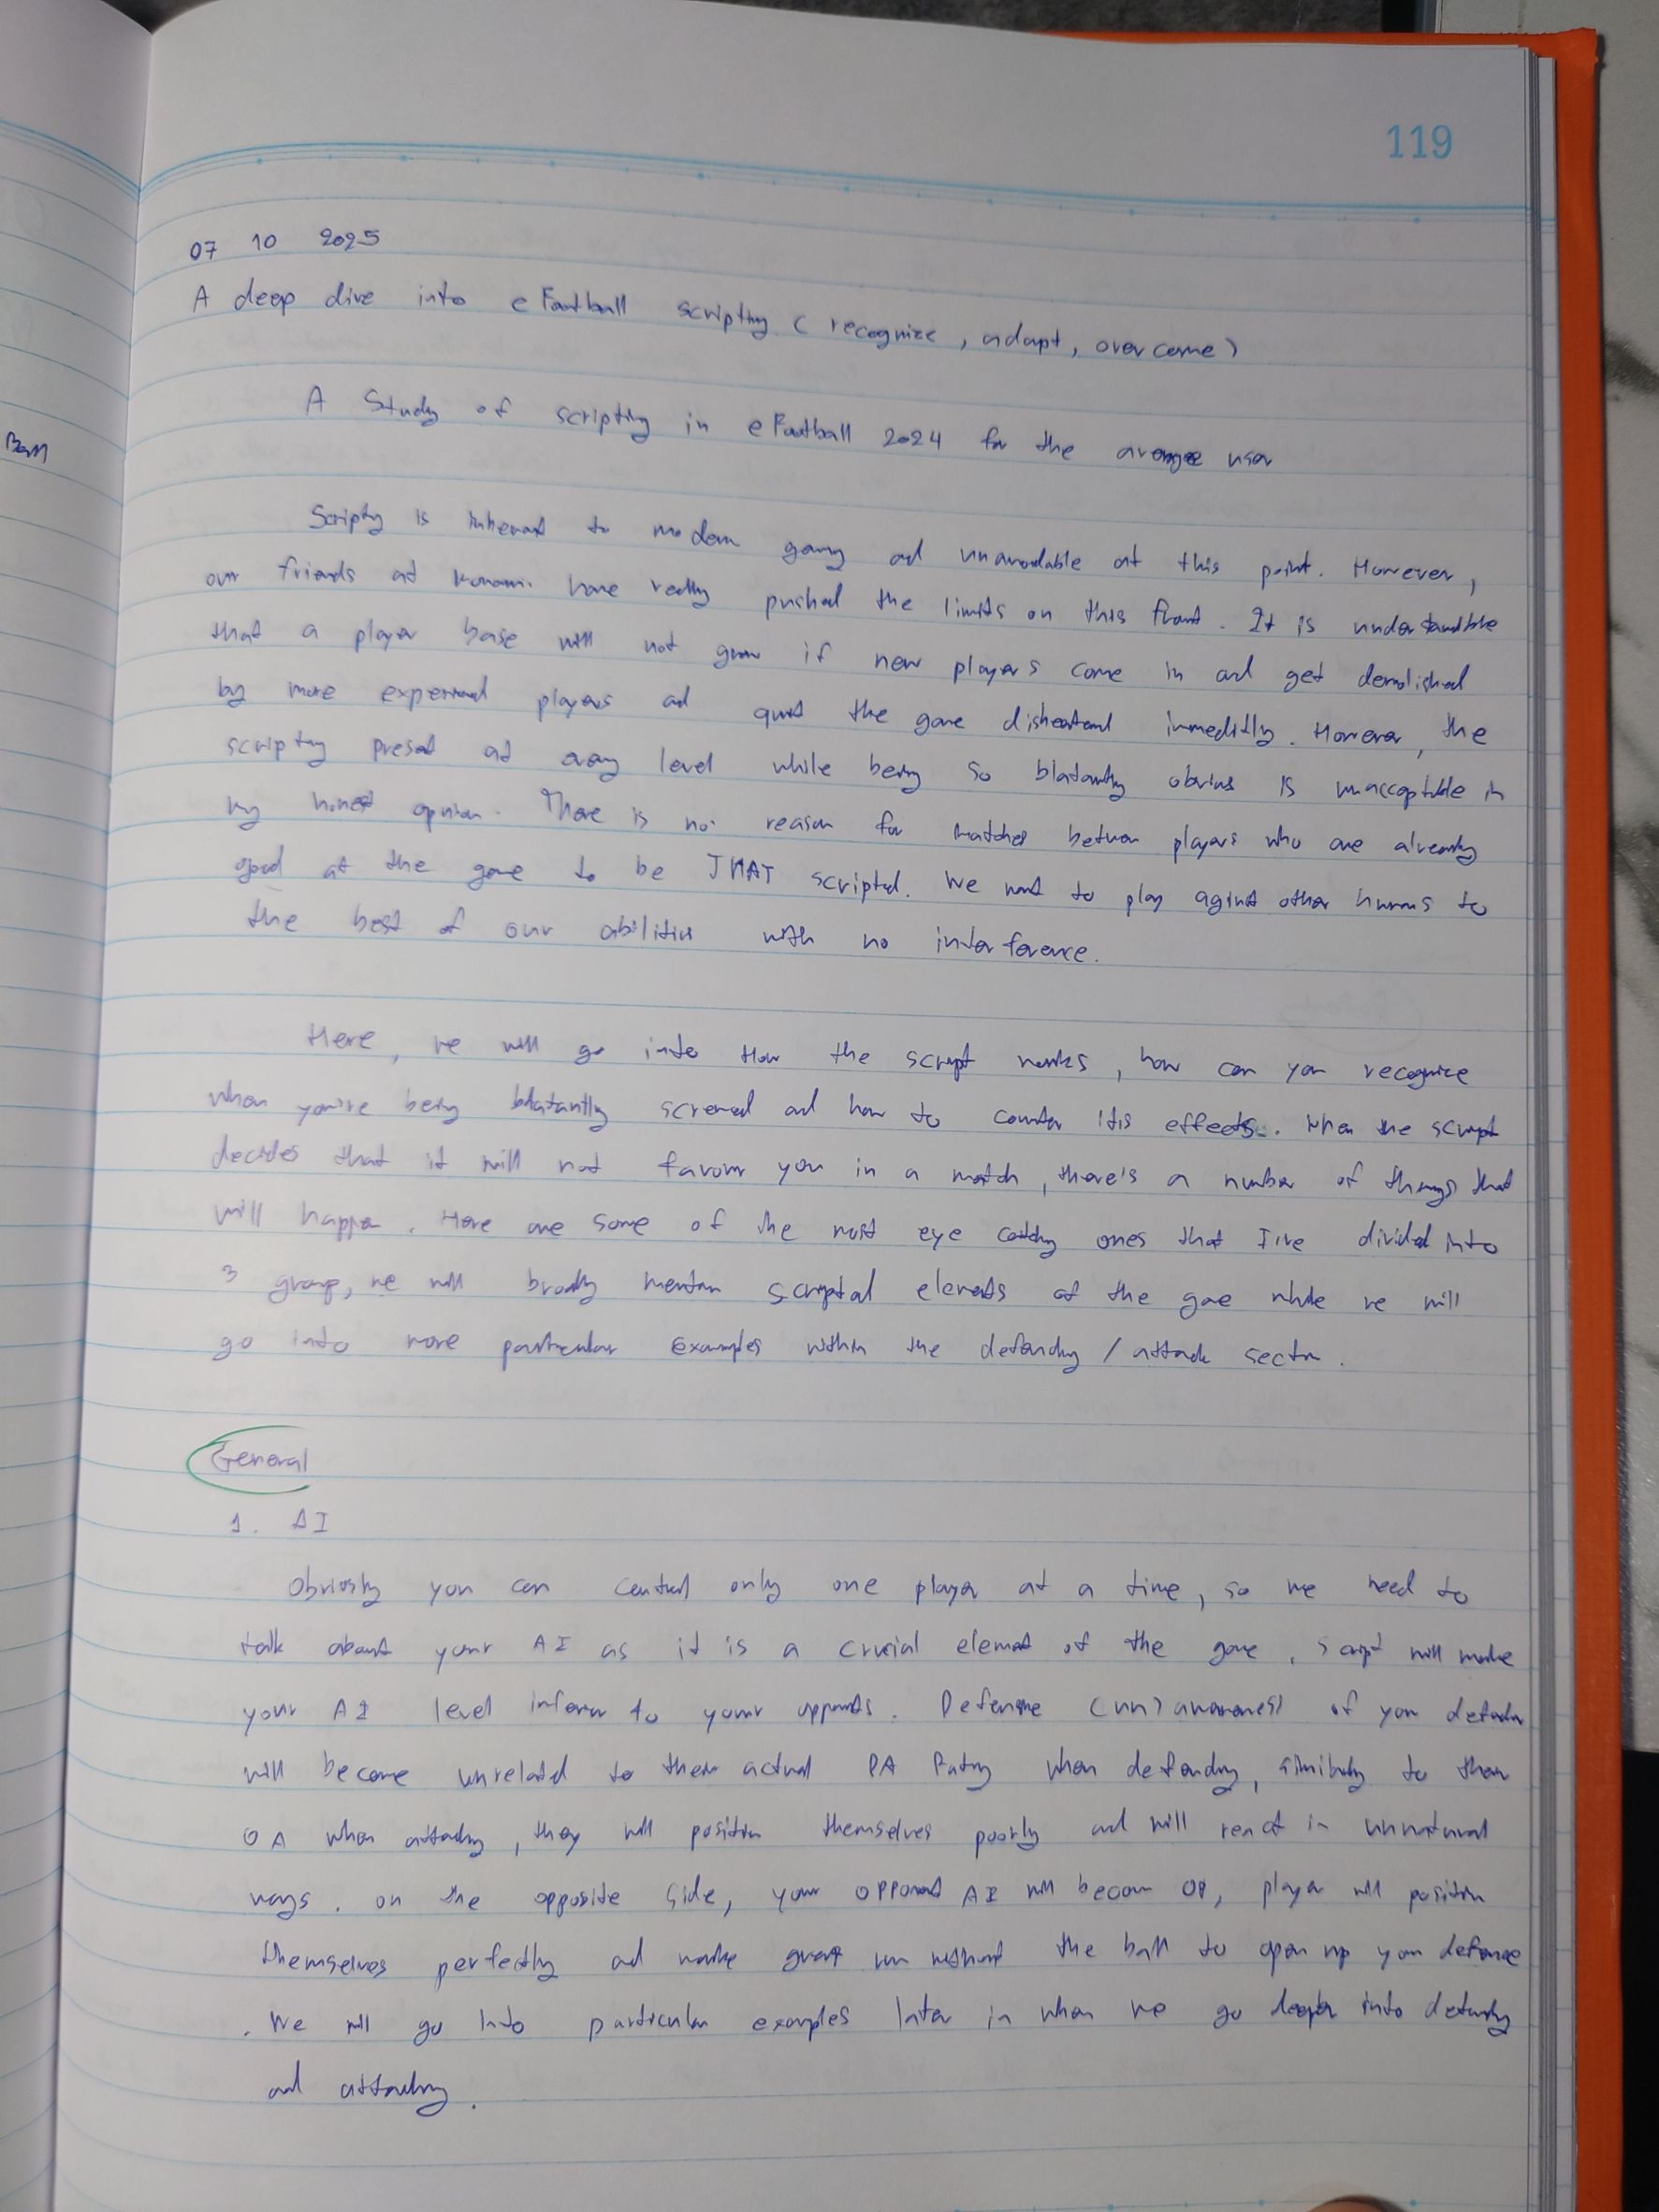 119
07 10 2025
A deep dive into eFootball scripting (recognize, adapt, overcome)
A Study of scripting in eFootball 2024 for the average user
Scripting is inherent to modern gaming and unavoidable at this point. However,
our friends at Konami have really pushed the limits on this front. It is understandable
that a player base will not grow if new players come in and get demolished
by more experienced players and quit the game disheartened immeditly. However, the
scripting present at every level while being so blatantly obvius is unacceptable in
my honest opinion. There is no reason for matches between players who are already
good at the game to be THAT scripted. We want to play aginst other humans to
the best of our abilities with no interference.
Here, we will go into How the script works, how can you recognize
when you're being blatantly screwed and how to counter it's effects. When the script
decides that it will not favour you in a match, there's a number of things that
will happen. Here are some of the most eye catching ones that I've divided into
3 group, we will broadly mention scripted elements of the game while we will
go into more particular examples within the defending / attack section.
General
1. AI
Obviosly you can control only one player at a time, so we need to
talk about your AI as it is a crucial element of the game. Script will make
your AI level inferior to your opponents. Defensive (un) awareness of your defenders
will become unrelated to their actual DA Rating when defending, similarly to their
OA when attacking, they will position themselves poorly and will react in unnatural
ways. on the opposite side, your opponent AI will become OP, player will position
themselves perfectly and make great run without the ball to open up your defence
. We will go into particular examples later in when we go deeper into defending
and attacking.
Ball